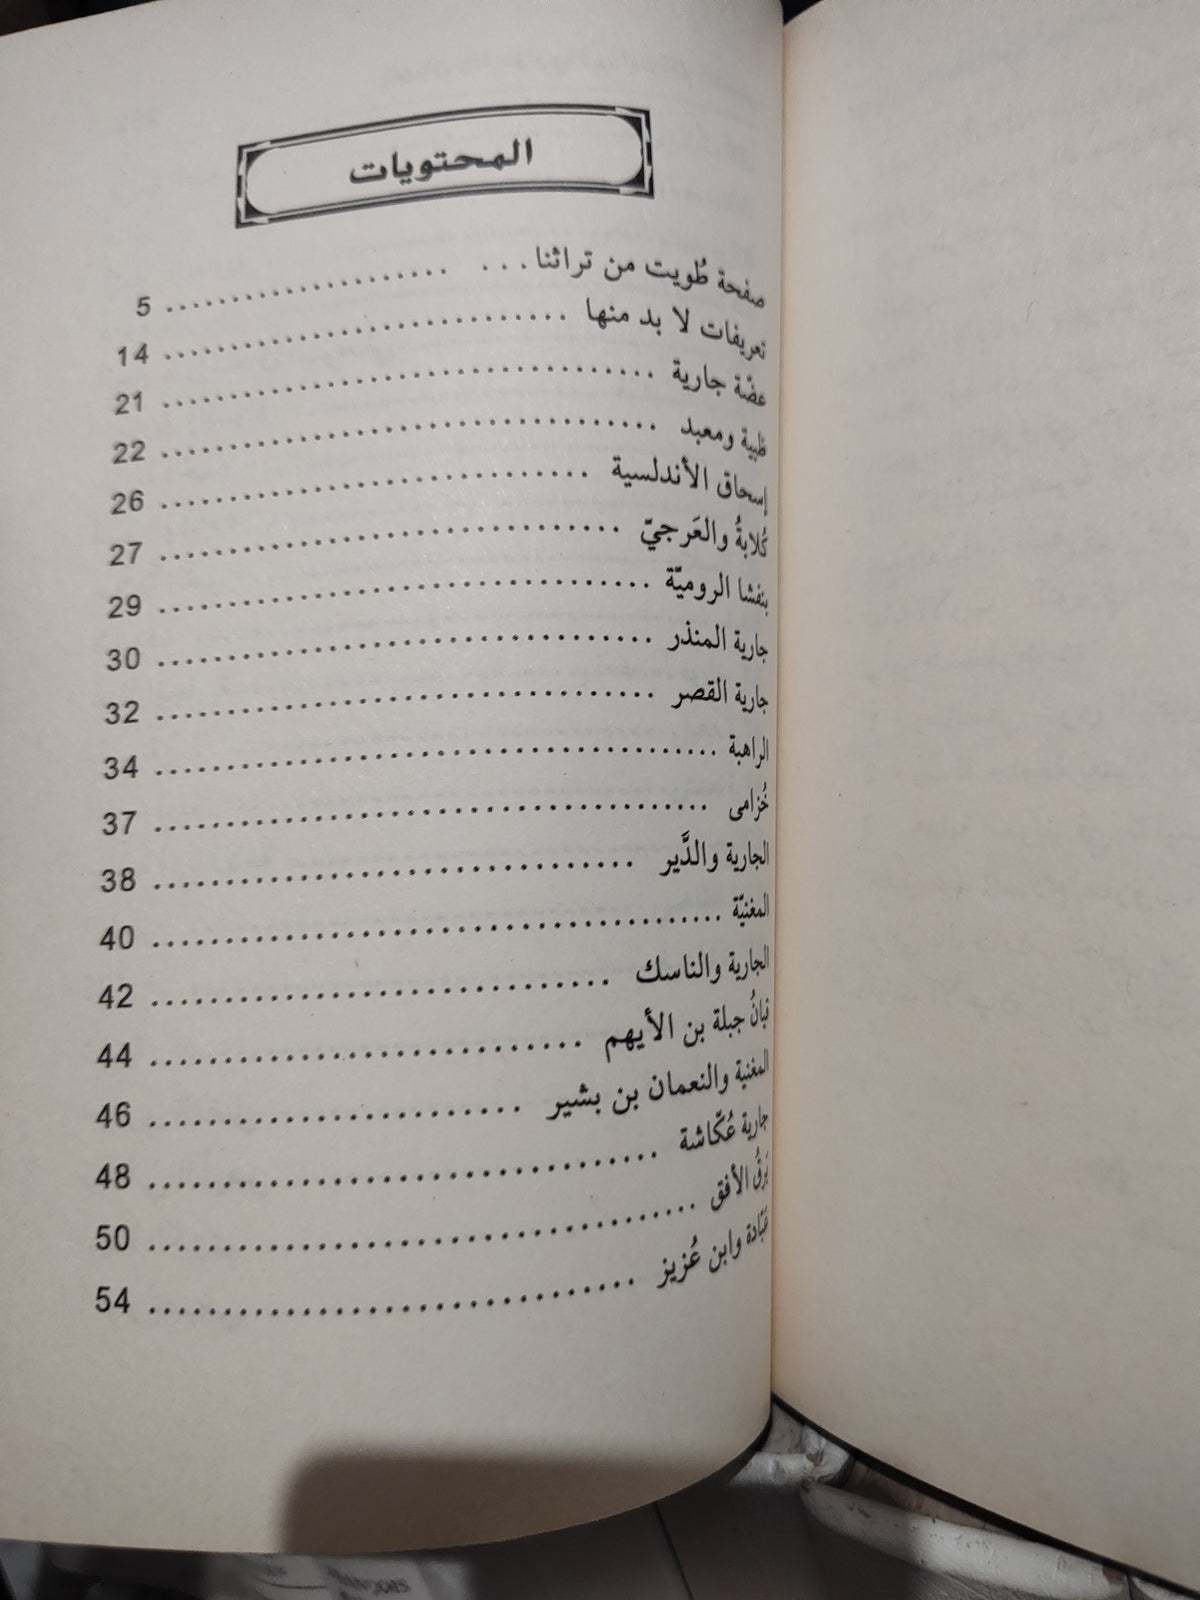 المحتويات
صفحة طُويت من تراثنا . . . . . . . . . . . . . . . . . . . . . . . 5
تعريفات لا بد منها . . . . . . . . . . . . . . . . . . . . . . . 14
عضّة جارية . . . . . . . . . . . . . . . . . . . . . . . 21
ظبية ومعبد . . . . . . . . . . . . . . . . . . . . . . . 22
إسحاق الأندلسية . . . . . . . . . . . . . . . . . . . . . . . 26
كُلابةُ والعَرجيّ . . . . . . . . . . . . . . . . . . . . . . . 27
بنفشا الروميّة . . . . . . . . . . . . . . . . . . . . . . . 29
جارية المنذر . . . . . . . . . . . . . . . . . . . . . . . 30
جارية القصر . . . . . . . . . . . . . . . . . . . . . . . 32
الراهبة . . . . . . . . . . . . . . . . . . . . . . . 34
خُزامى . . . . . . . . . . . . . . . . . . . . . . . 37
الجارية والدَّير . . . . . . . . . . . . . . . . . . . . . . . 38
المغنيّة . . . . . . . . . . . . . . . . . . . . . . . 40
الجارية والناسك . . . . . . . . . . . . . . . . . . . . . . . 42
قيانُ جبلة بن الأيهم . . . . . . . . . . . . . . . . . . . . . . . 44
المغنية والنعمان بن بشير . . . . . . . . . . . . . . . . . . . . . . . 46
جارية عُكّاشة . . . . . . . . . . . . . . . . . . . . . . . 48
بَرقُ الأفق . . . . . . . . . . . . . . . . . . . . . . . 50
عَبّادة وابن عُزيز . . . . . . . . . . . . . . . . . . . . . . . 54